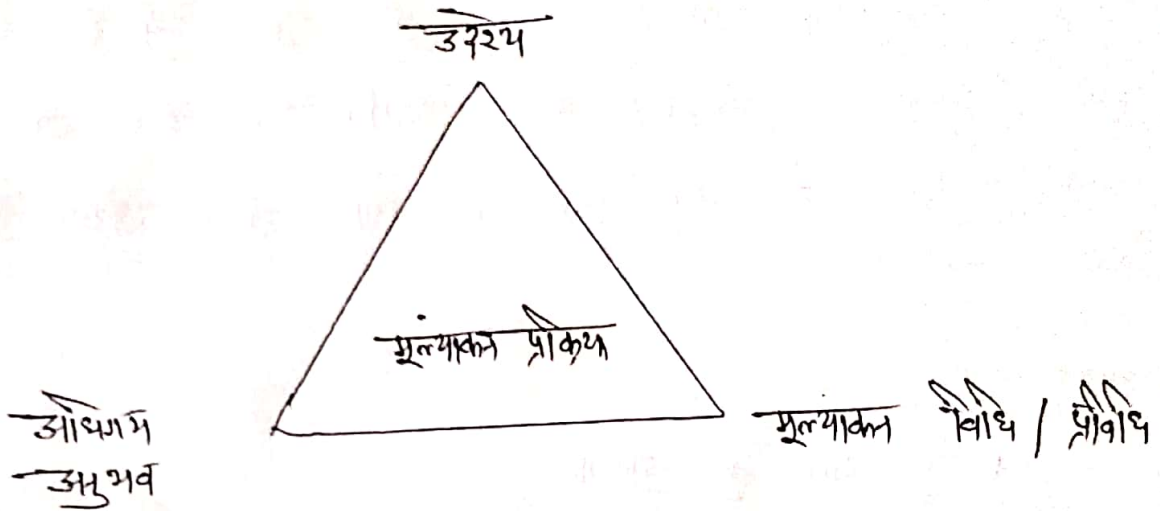 उद्देश्य
मूल्यांकन प्रक्रिया
अधिगम
अनुभव
मूल्यांकन विधि / प्रविधि